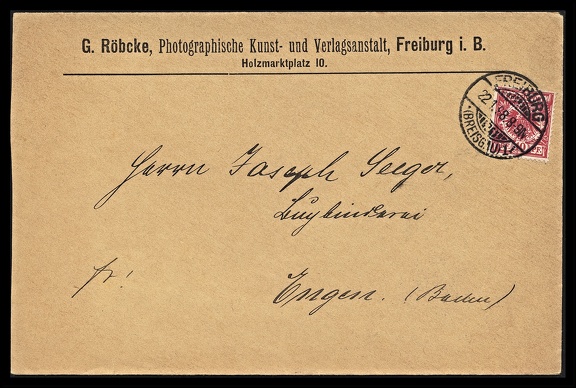 G. Röbcke, Photographische Kunst- und Verlagsanstalt, Freiburg i. B.
Holzmarktplatz 10.
FREIBURG
(BREISGAU)
Herrn Joseph Seeger,
Buchbinderei
fr!
Engen. (Baden)